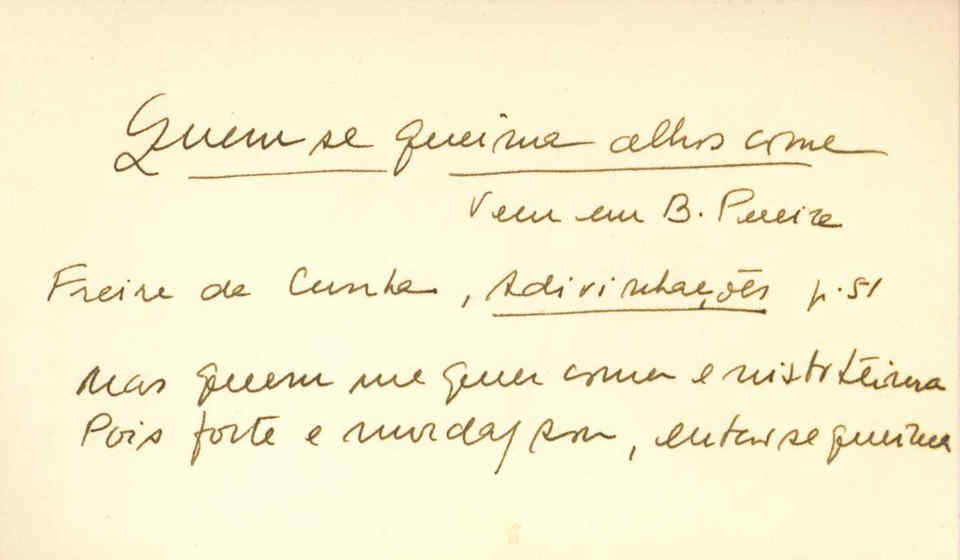 Quem se queima alhos come
Vem em B. Pereira
Freire da Cunha, Adivinhações p. 51
Mas quem me quer comer e nisto teima
Pois forte e mordaz sou, então se queima